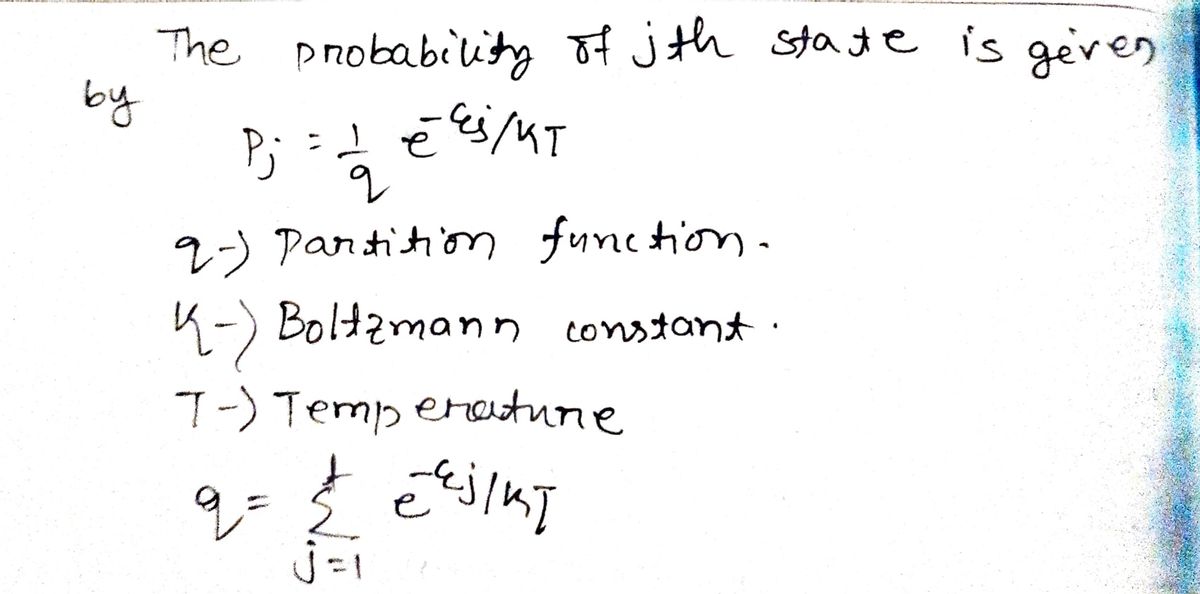 The probability of jth state is given
by
Pj = 1/q e^-εj/KT
q -> Partition function.
K -> Boltzmann constant.
T -> Temperature
q = Σ_{j=1}^{t} e^-εj/KT